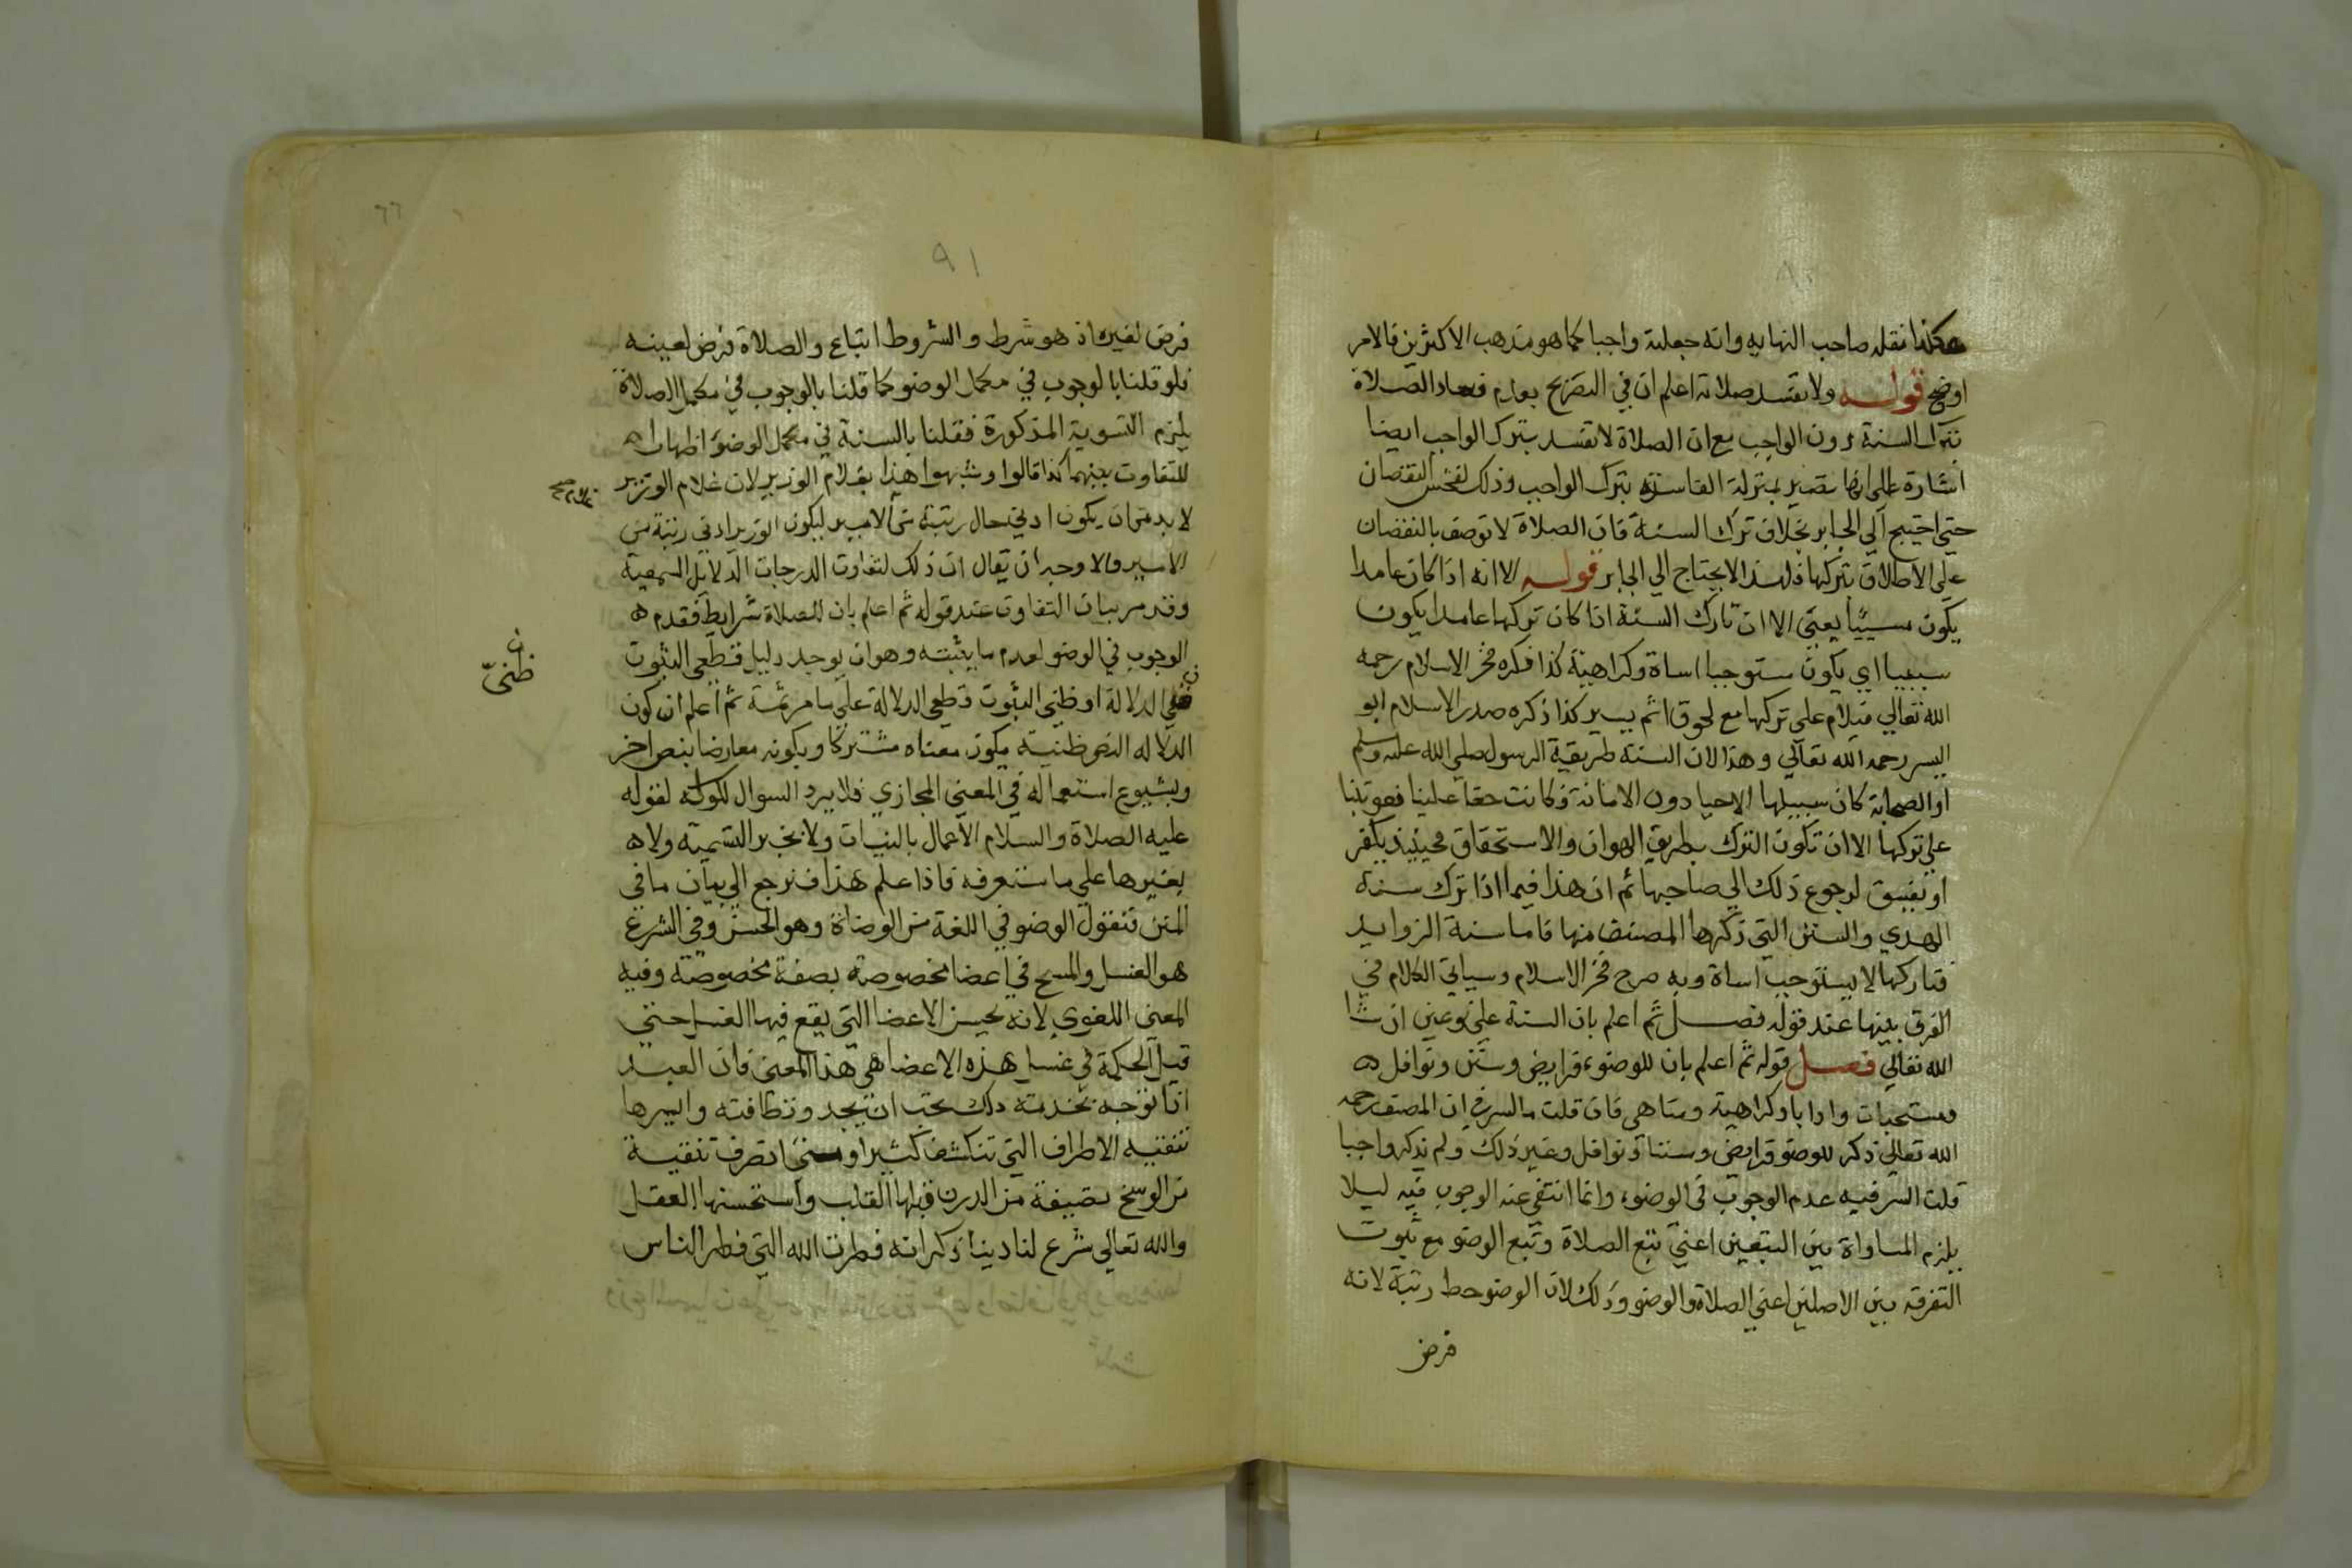 هكذا نقله صاحب النهايه وانه جعله واجبا كما هو مذهب الاكثرين فالامر
اوضح قوله ولا تفسد صلاته اعلم ان في التصريح بعدم فساد الصلاة
بترك السنة دون الواجب مع ان الصلاة لا تفسد بترك الواجب ايضا
اشارة على انها تصير بمنزلة الفاسدة بترك الواجب وذلك لفحش النقصان
حتى احتيج الي الجابر بخلاف ترك السنة فان الصلاة لا توصف بالنقصان
على الاطلاق بتركها فلهذا لا يحتاج الي الجابر قوله الا انه اذا كان عامدا
يكون مسيئا يعني الا ان تارك السنة اذا كان تركها عامدا يكون
مسيا اي يكون مستوجبا اساة وكراهية كذا ذكره فخر الاسلام رحمه
الله تعالي فيلام على تركها مع لحوق اثم يسير كذا ذكره صدر الاسلام ابو
اليسر رحمه الله تعالي وهذا لان السنة طريقة الرسول صلي الله عليه وسلم
او الصحابة كان سبيلها الاحيا دون الاماتة فكانت حقا علينا فعوتبنا
علي تركها الا ان تكون الترك بطريق الهوان والاستحقاق فحينيذ يكفر
او يفسق لرجوع ذلك الي صاحبها ثم ان هذا فيما اذا ترك سنة
الهدي والسنن التي ذكرها المصنف منها فاما سنة الزوايد
فتاركها لا يستوجب اساة وبه صرح فخر الاسلام وسياتي الكلام في
الفرق بينها عند قوله فصل ثم اعلم بان السنة علي نوعين ان شا
الله تعالي فصل قوله ثم اعلم بان للوضوء فرايض وسنن ونوافل
ومستحبات وادابا وكراهية ومناهي فان قلت ما السر في ان المصنف رحمه
الله تعالي ذكر للوضو فرايض وسننا ونوافل وغير ذلك ولم يذكر واجبا
قلت السر فيه عدم الوجوب في الوضوء وانما انتفي عنه الوجوب فيه ليلا
يلزم المساواة بين التبعين اعني تبع الصلاة وتبع الوضو مع ثبوت
التفرقه بين الاصلين اعني الصلاة والوضو وذلك لان الوضو حط رتبة لانه
فرض
٦٦
٩١
فرض لغيره اذ هو شرط والشروط اتباع والصلاة فرض لعينه
فلو قلنا بالوجوب في مكمل الوضو كما قلنا بالوجوب في مكمل الصلاة
يلزم التسوية المذكورة فقلنا بالسنة في مكمل الوضو اظهارا
للتفاوت بينهما كذا قالوا وشبهوا هذا بغلام الوزير لان غلام الوزير
لا بد من ان يكون ادني حال رتبة من الامير ليكون الوزير ادني رتبة من
الامير والاوجه ان يقال ان ذلك لتفاوت الدرجات الدلايل السمعية
وقد مر بيان التفاوت عند قوله ثم اعلم بان للصلاة شرايط فقدم
الوجوب في الوضو لعدم ما يثبته وهو ان يوجد دليل قطعي الثبوت
ن
ظنيّ
الدلالة او ظني الثبوت قطعي الدلالة علي ما مر ثمة ثم اعلم ان كون
الدلاله النص ظنية يكون معناه مشتركا وبكونه معارضا بنص اخر
وبشيوع استعماله في المعني المجازي فلا يرد السوال لكوله لقوله
عليه الصلاة والسلام الاعمال بالنيات ولا بخبر التسمية ولا
بغيرها علي ما ستعرفه فاذا علم هذا فنرجع الي بيان ما في
المتن فنقول الوضو في اللغة من الوضاة وهو الحسن وفي الشرع
هو الغسل والمسح في اعضا مخصوصة بصفة مخصوصة وفيه
المعني اللغوي لانه يحسن الاعضا التي يقع فيها الغسل حتي
قيل الحكمة في غسل هذه الاعضا هي هذا المعني فان العبد
اذا توجه بخدمته ملك يجب ان يجدد ونظافته وايسرها
تنقيه الاطراف التي تنكشف كثيرا تنقية
من الوسخ من الدرن قبلها القلب واستحسنها العقل
والله تعالي شرع لنا دينا ذكر انه فطرت الله التي فطر الناس